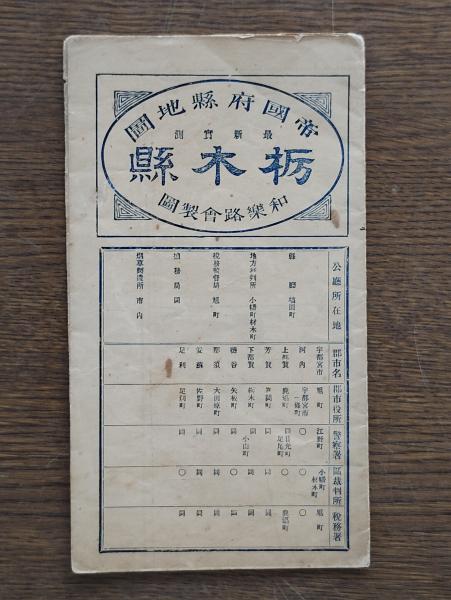 帝國府縣地圖
最新實測
栃木縣
和樂路會製圖
公廳所在地 郡市名 郡市役所 警察署 區裁判所 稅務署
縣廳 塙田町
地方裁判所 小幡町材木町
稅務監督局 旭町
烟草製造所 市內
宇都宮市 旭町 江野町 小幡町材木町 旭町
河內 宇都宮市一條町 〇 〇 〇
上都賀 鹿沼町 同日光町足尾町 〇 鹿沼町
芳賀 真岡町 同 同 同
下都賀 栃木町 同小山町 同
鹽谷 矢板町 同
那須 大田原町 同 同 同
安蘇 佐野町 同 同 同
足利 足利町 同 〇 同